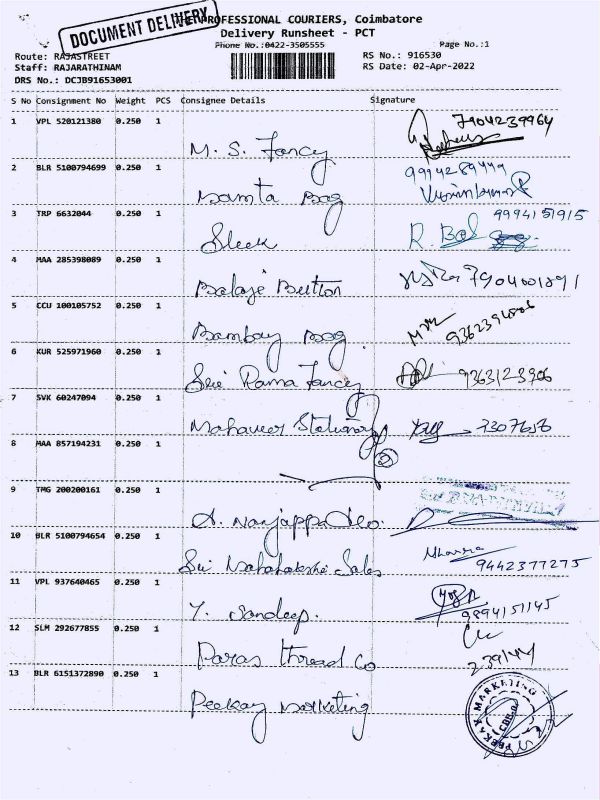 DOCUMENT DELIVERY
THE PROFESSIONAL COURIERS, Coimbatore
Delivery Runsheet - PCT
Phone No.:0422-3505555 Page No.:1
Route: RAJASTREET RS No.: 916530
Staff: RAJARATHINAM RS Date: 02-Apr-2022
DRS No.: DCJB91653001
S No Consignment No Weight PCS Consignee Details Signature
1 VPL 520121380 0.250 1 7904239964
M. S. Fancy
2 BLR 5100794699 0.250 1
Mamta Bag
3 TRP 6632044 0.250 1 9994151915
Sleek R. Bal
4 MAA 285398089 0.250 1
Balaji Button 7904001891
5 CCU 100105752 0.250 1
Bombay Bag
6 KUR 525971960 0.250 1
Sri Rama Fancy 9363123906
7 SVK 60247094 0.250 1
Mahaveer Stationary 7307656
8 MAA 857194231 0.250 1 2
9 TMG 200200161 0.250 1
A. Nanjappa &Co.
10 BLR 5100794654 0.250 1
Sri Mahalakshmi Sales 9442377275
11 VPL 937640465 0.250 1
Y. Sandeep. 9894151145
12 SLM 292677855 0.250 1
Paras Thread Co 239144
13 BLR 6151372890 0.250 1
Peekay Marketing
PEEKAY MARKETING